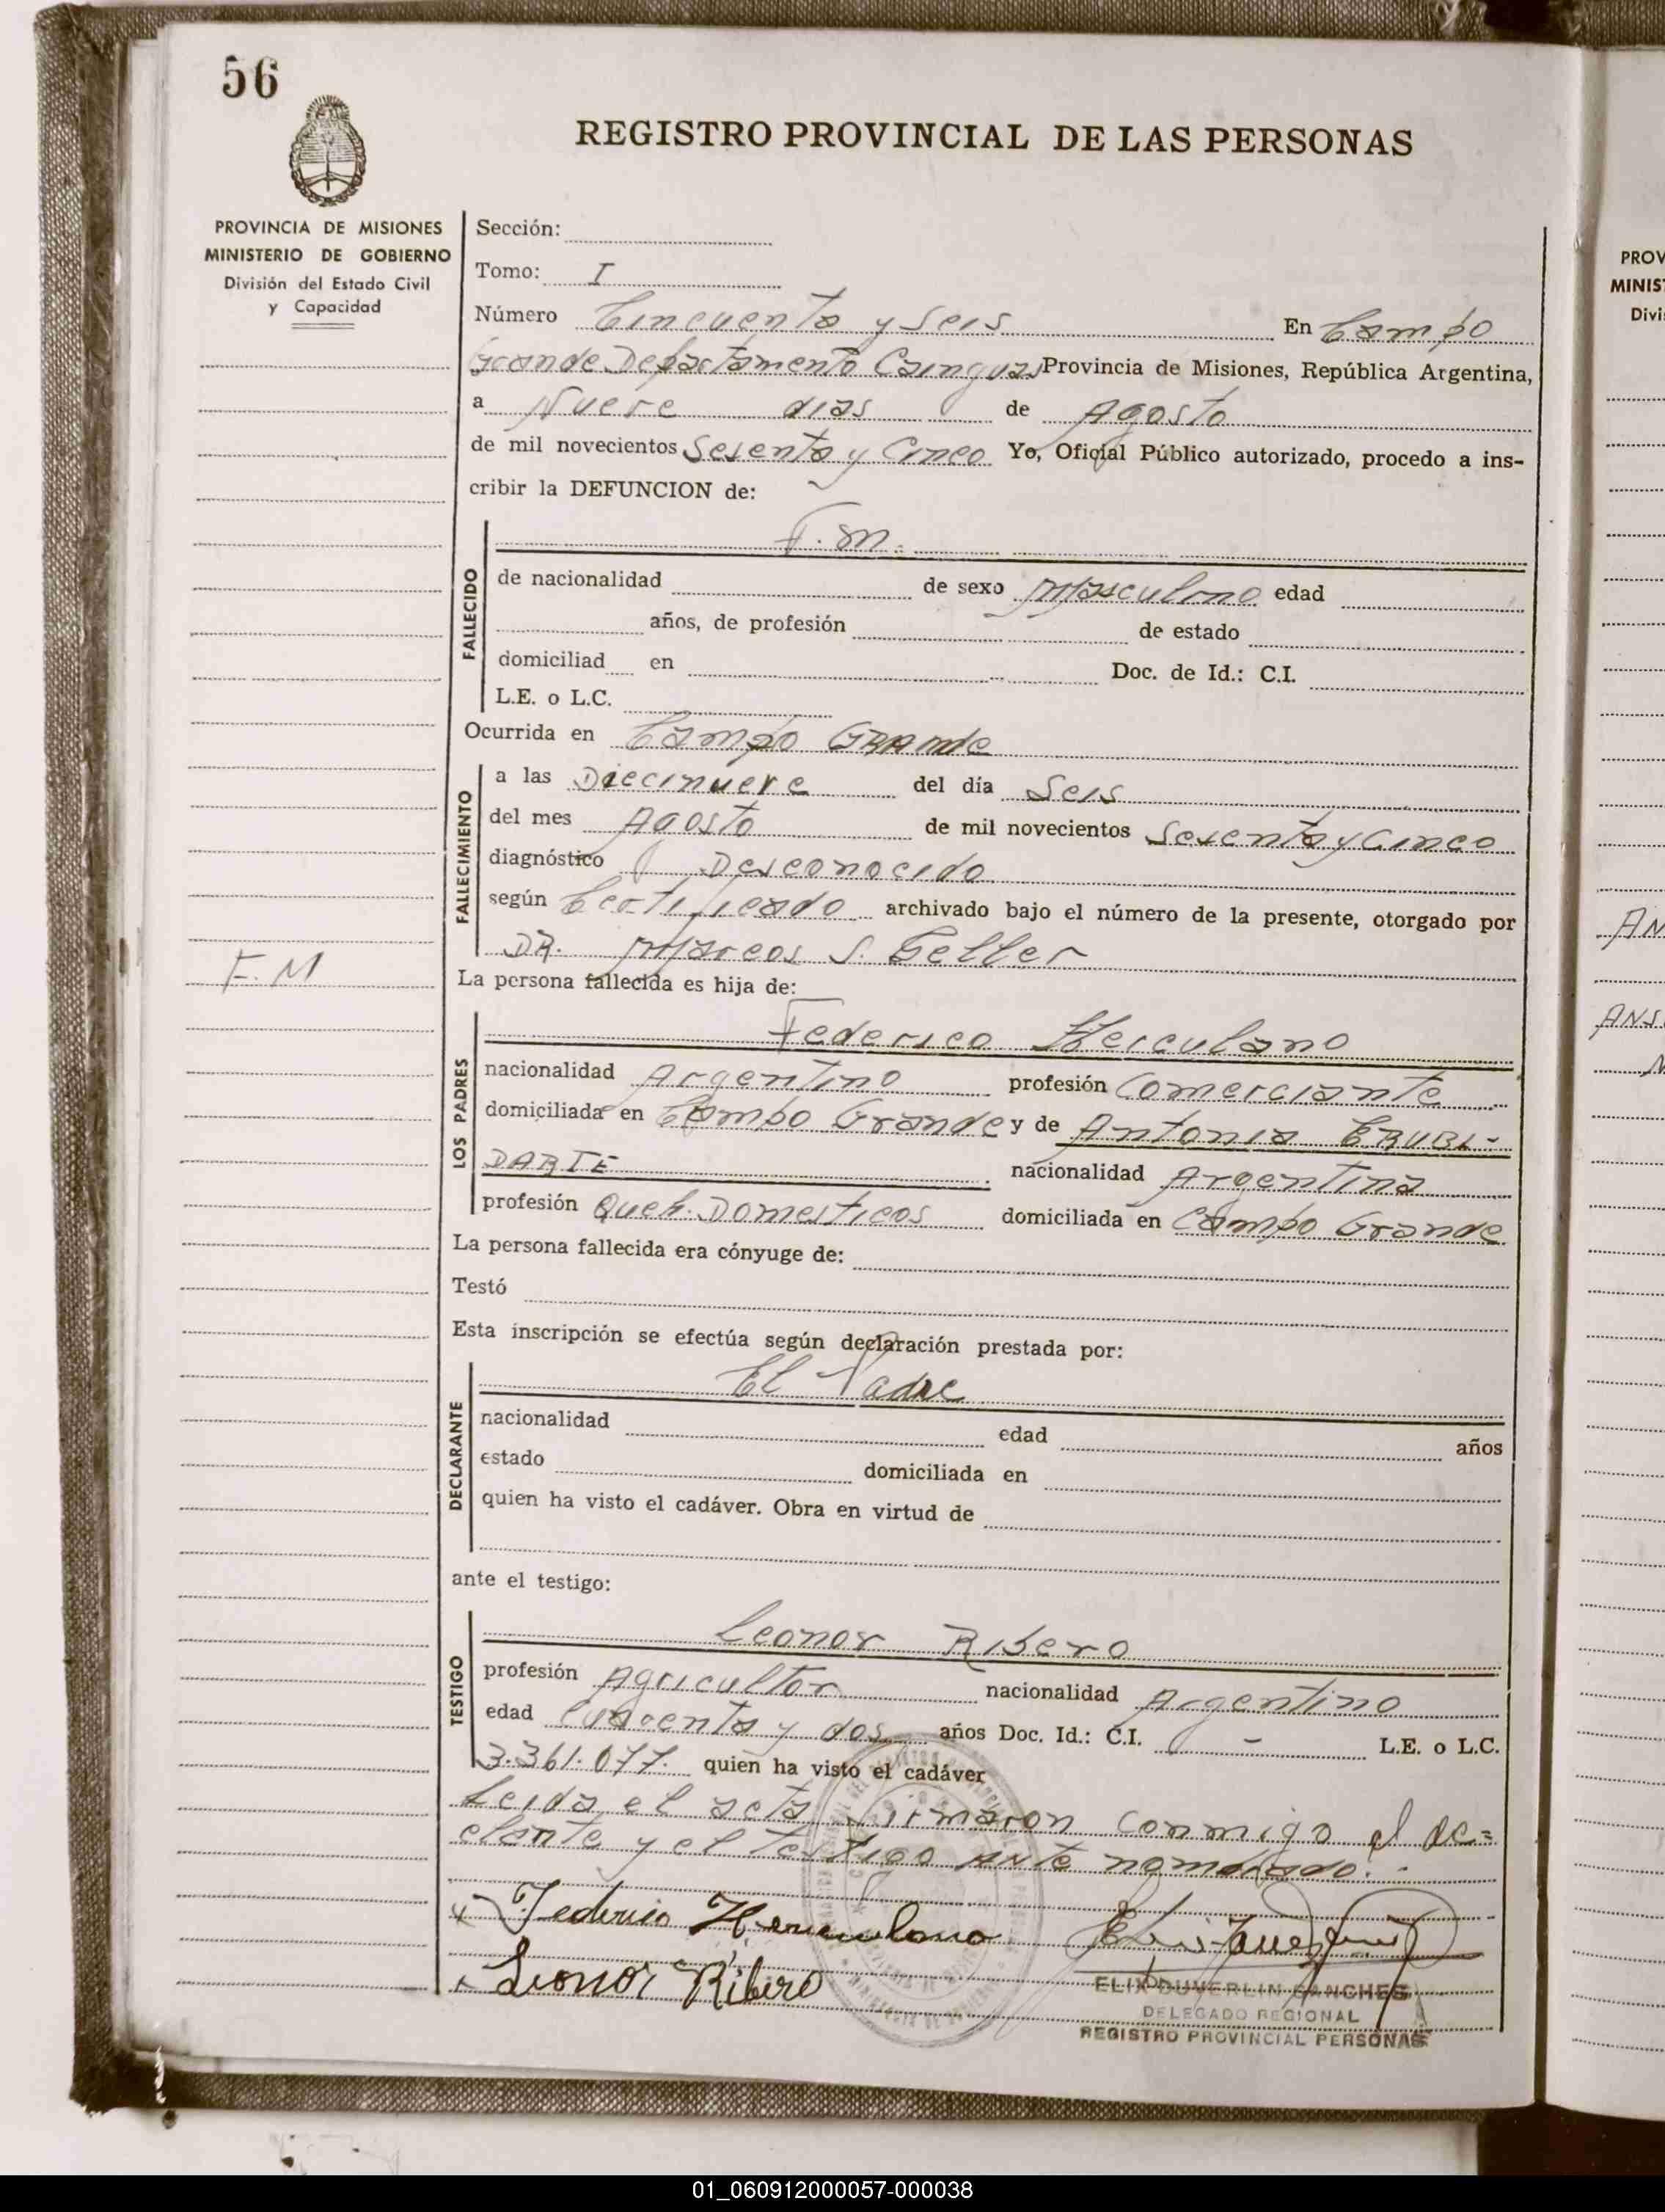 56
REGISTRO PROVINCIAL DE LAS PERSONAS
PROVINCIA DE MISIONES
MINISTERIO DE GOBIERNO
División del Estado Civil
y Capacidad
Sección:
Tomo: I
Número Cincuenta y Seis En Campo
Grande Departamento Cainguas Provincia de Misiones, República Argentina,
a Nueve dias de Agosto
de mil novecientos Sesenta y Cinco Yo, Oficial Público autorizado, procedo a ins-
cribir la DEFUNCION de:
F. M.
FALLECIDO
de nacionalidad de sexo Masculino edad
años, de profesión de estado
domiciliad en Doc. de Id.: C.I.
L.E. o L.C.
Ocurrida en Campo Grande
FALLECIMIENTO
a las Diecinueve del día Seis
del mes Agosto de mil novecientos Sesenta y Cinco
diagnóstico Desconocido
según Certificado archivado bajo el número de la presente, otorgado por
DR. Marcos S. Geller
F. M
La persona fallecida es hija de:
LOS PADRES
Federico Herculano
nacionalidad Argentino profesión Comerciante
domiciliada en Campo Grande y de Antonia ERUBI-
DARTE nacionalidad Argentina
profesión Queh. Domesticos domiciliada en Campo Grande
La persona fallecida era cónyuge de:
Testó
Esta inscripción se efectúa según declaración prestada por:
DECLARANTE
El Padre
nacionalidad edad años
estado domiciliada en
quien ha visto el cadáver. Obra en virtud de
ante el testigo:
TESTIGO
Leonor Ribero
profesión Agricultor nacionalidad Argentino
edad Cuarenta y dos años Doc. Id.: C.I. - L.E. o L.C.
3.361.077. quien ha visto el cadáver
Leida el acta firmaron conmigo el de=
clante y el testigo ante nombrado.
Federico Herculano
Leonor Ribero
ELIX DUVERLIN SANCHES
DELEGADO REGIONAL
REGISTRO PROVINCIAL PERSONAS
PROV
MINIS
Divi
AN
ANS
01_060912000057-000038